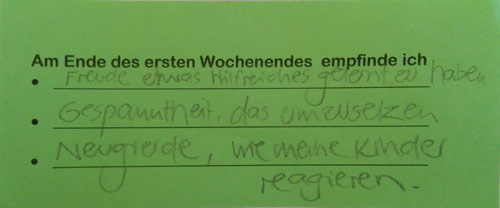 Am Ende des ersten Wochenendes empfinde ich
• Freude etwas hilfreiches gelernt zu haben
• Gespanntheit, das umzusetzen
• Neugierde, wie meine Kinder
reagieren.